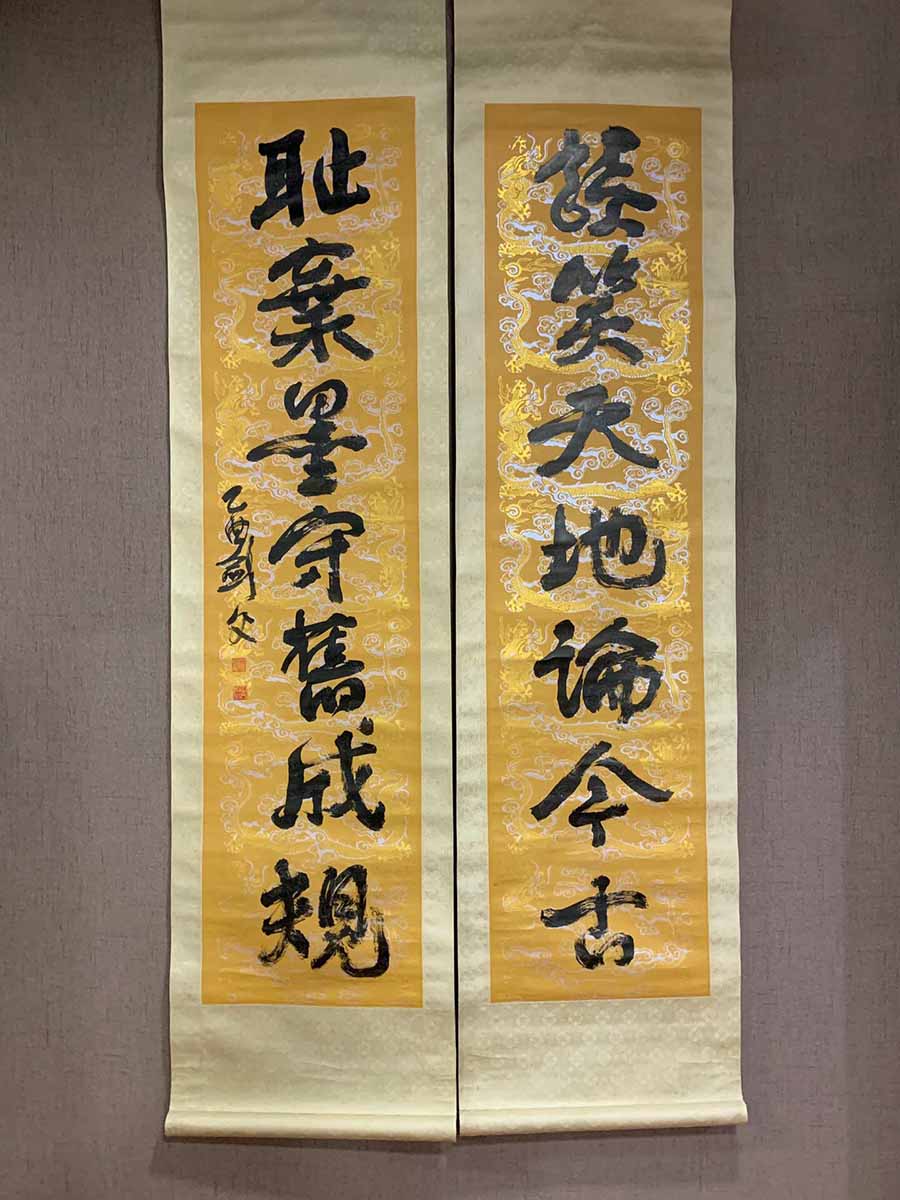 談笑天地論今古
耻棄墨守舊成規
乙酉劍父